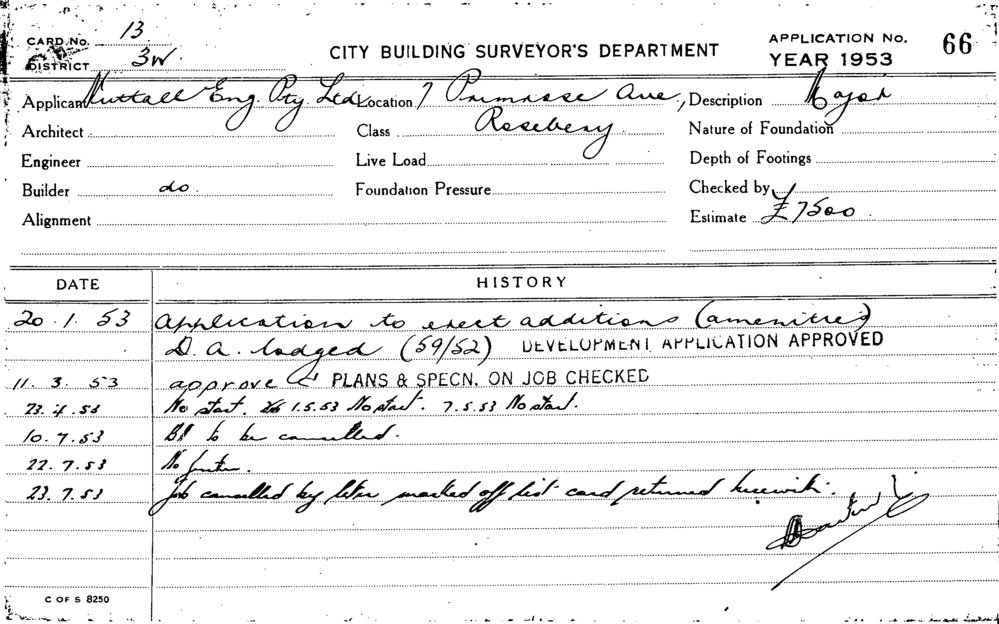 CARD No. 13
DISTRICT 3W.
CITY BUILDING SURVEYOR'S DEPARTMENT
APPLICATION No. 66
YEAR 1953
Applicant Nuttall Eng. Pty. Ltd. Location 7 Primrose Ave., Description Major
Architect Class Rosebery Nature of Foundation
Engineer Live Load Depth of Footings
Builder do. Foundation Pressure Checked by
Alignment Estimate £7500
DATE HISTORY
20.1.53 Application to erect additions (amenities)
D.A. lodged (59/52) DEVELOPMENT APPLICATION APPROVED
11.3.53 approve PLANS & SPECN. ON JOB CHECKED
23.4.53 No start. 1.5.53 No start. 7.5.53 No start.
10.7.53 BA to be cancelled.
22.7.53 No
23.7.53 Job cancelled by letter marked off list card returned herewith.
C OF S 8250